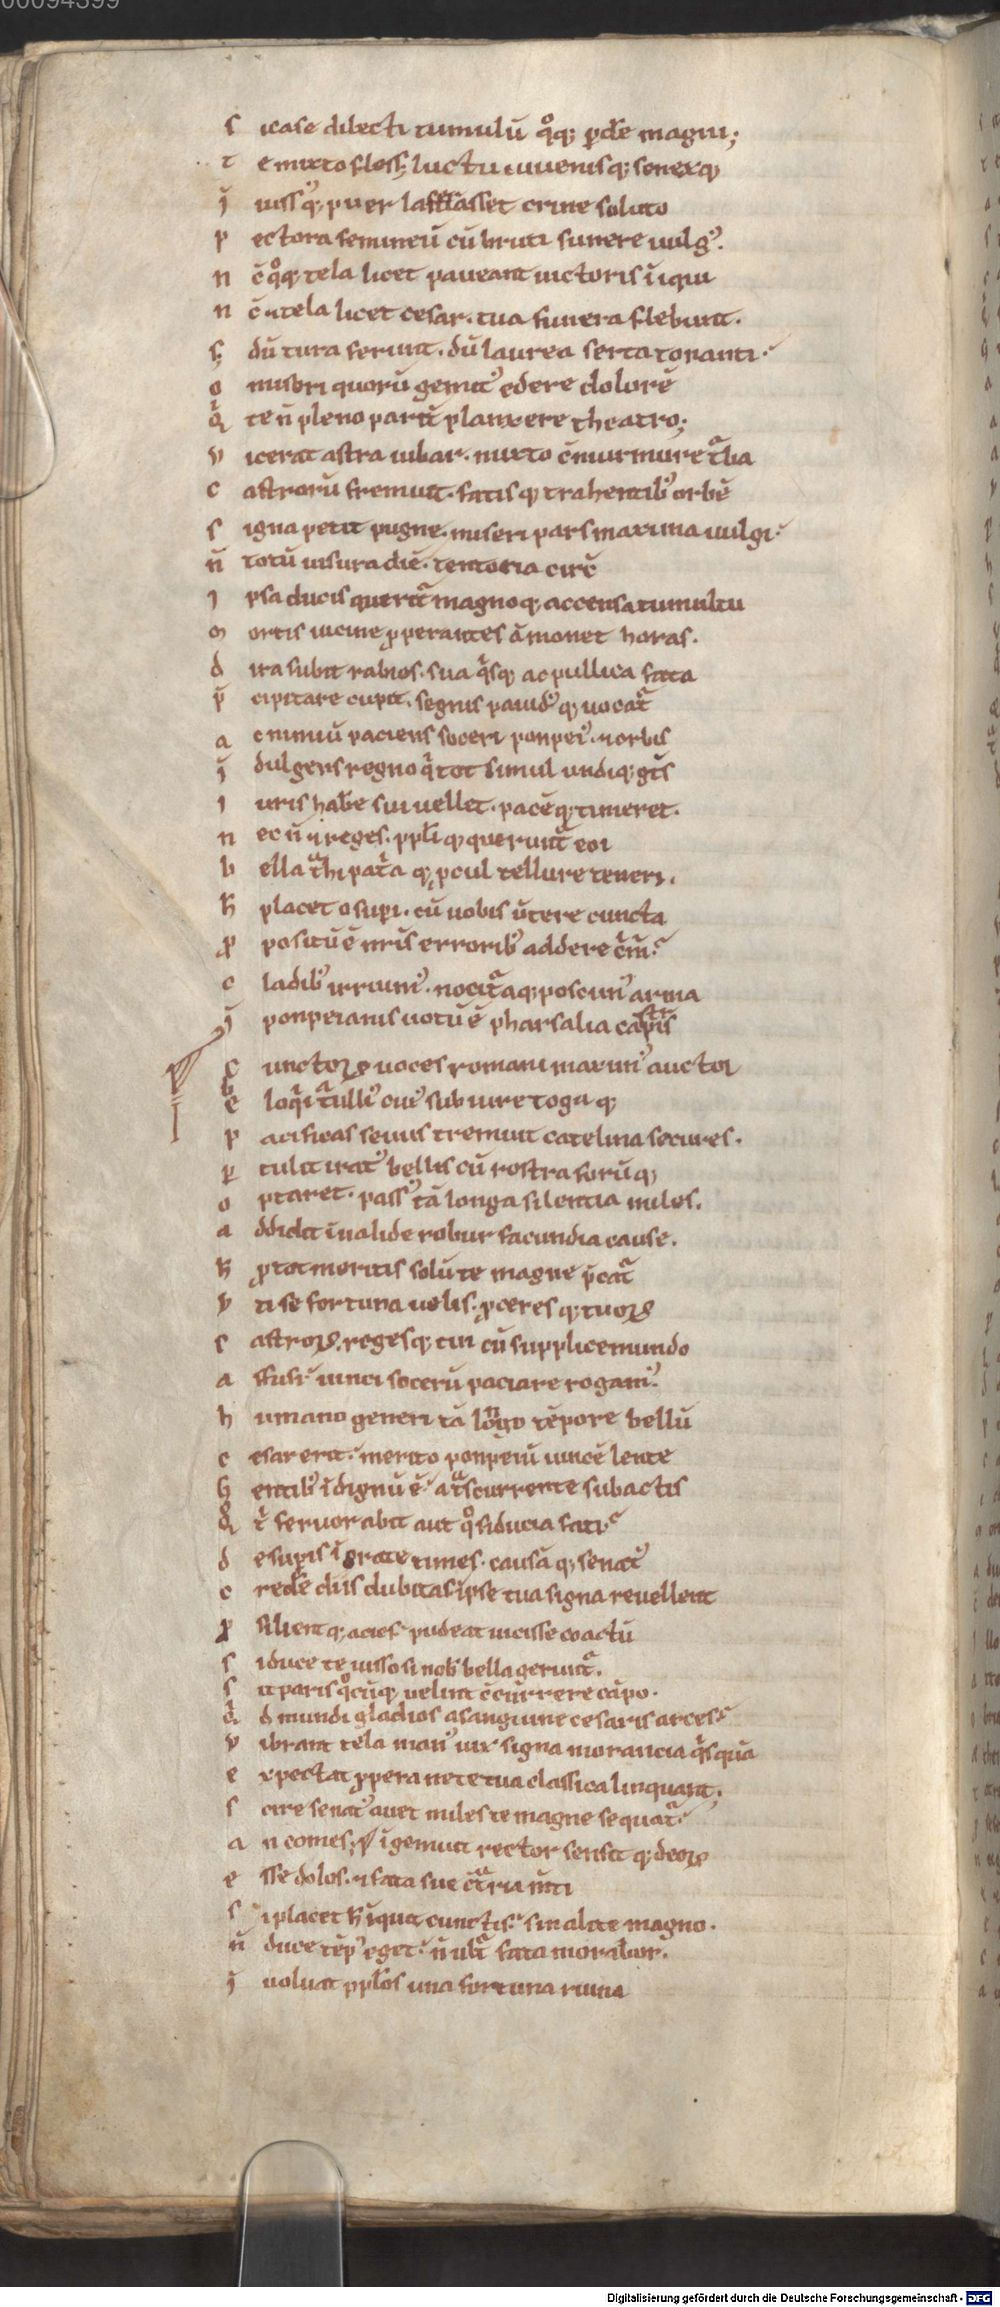 00094399
s icase dilecti tumulū qͦq; ꝑdr̄e magni;
t e mixto fless; luctu iuuenisq; senexq;
ī iussꝰq; puer lacerasset crine soluto
p ectora femineū cū bruti funere uulgꝰ.
n c̄ qͦq; tela licet paueant uictoris īiqui
n c̄ tela licet cesar. tua funera flebunt.
s; dū tura ferunt. dū laurea serta tonanti.
o miseri quorū gemitꝰ edere dolorē
q̄ te n̄ pleno parit̄ planxere theatro;
v icerat astra iubar. mixto c̄ murmure tͣba
c astrorū fremuit. fatisq; trahentibꝰ orbē
s igna petit pugne. miseri pars maxima uulgi.
n̄ totū uisura diē. tentoria circ̄
i psa ducis querit̄ magnoq; accensa tumultu
m ortis uicine ꝓperantes āmonet horas.
d ira subit rabies. sua qͥsq; ac pullica fata
p̄ cipitare cupit. segnis pauidꝰq; uocat̄
a c nimiū paciens soceri ponpeiꝰ. ⁊ orbis
ī dulgens regno qͥ tot simul undiq; gt̄s
i uris habr̄e sui uellet. pacēq; timeret.
n ec n̄ ⁊ reges. ppl̄iq; querunt̄ eoi
b ella tͣhi patͥaq; ꝓcul tellure teneri.
h̄ placet o suꝑi. cū uobis ūtere cuncta
ꝓ positū ē nr̄is erroribꝰ addere c̄m̄.
c ladibꝰ irruimꝰ. nocitͣaq; poscimꝰ arma
ī ponpeianis uotū ē pharsalia castris
C unctoꝝ uoces romani maximꝰ auctor
e loqͥi tulliꝰ cuiꝰ sub iure togaq;
p acificas seuus tremuit catelina secures.
ꝑ tulit iratꝰ bellis cū rostra forūq;
o ptaret. passꝰ tā longa silentia miles.
a ddidit īualide robur facundia cause.
h̄ ꝓ tot meritis solū te magne p̄cat̄
v ti se fortuna uelis. ꝓceresq; tuoꝝ
c astroꝝ. regesq; tui cū supplice mundo
a ffusi uinci socerū paciare rogamꝰ.
h umano generi tā longo tēpore bellū
c esar erit. merito ponpeiū uincē lente
G entibꝰ īdignū ē. a tͣscurrente subactis
q tͥ feruor abit aut qͦ fiducia fati.
d e suꝑis īgrate times. causāq; senatꝰ
c redr̄e diis dubitas ipse tua signa reuellent
ꝓ silientq; acies. pudeat uicisse coactū
s i duce te iusso si nob̄ bella gerunt̄.
s it paris qͦcūq; uelint c̄currere cāpo.
q d mundi gladios a sanguine cesaris arces.
v ibrant tela manꝰ uix signa morancia qͥsquā
e xpectat ꝓpera ne te tua classica linquant.
s cire senatꝰ auet miles te magne sequat̄.
a n comes; īgemuit rector sensitq; deoꝝ
e sse dolos. ⁊ fata sue c̄tͣria m̄ti
s i placet h̄ īquit cunctis. si milite magno.
n̄ duce tēpꝰ eget. n̄ ultͣ fata morabor.
ī uoluat ppl̄os una fortuna ruina
Digitalisierung gefördert durch die Deutsche Forschungsgemeinschaft - DFG